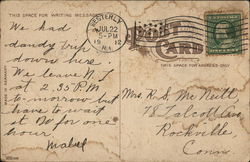 THIS SPACE FOR WRITING MESSAGES
WESTERLY
JUL 22
5-PM
1912
R.I.
POST CARD
THIS SPACE FOR ADDRESS ONLY
MADE IN GERMANY
We had
dandy trip
down here.
We leave N.L
at 2.35 P.M
to-morrow but
have to wait
at for one
hour.
Mabel
Mrs R.S. McNeill
78 Talcott Ave
Rockville
Conn.